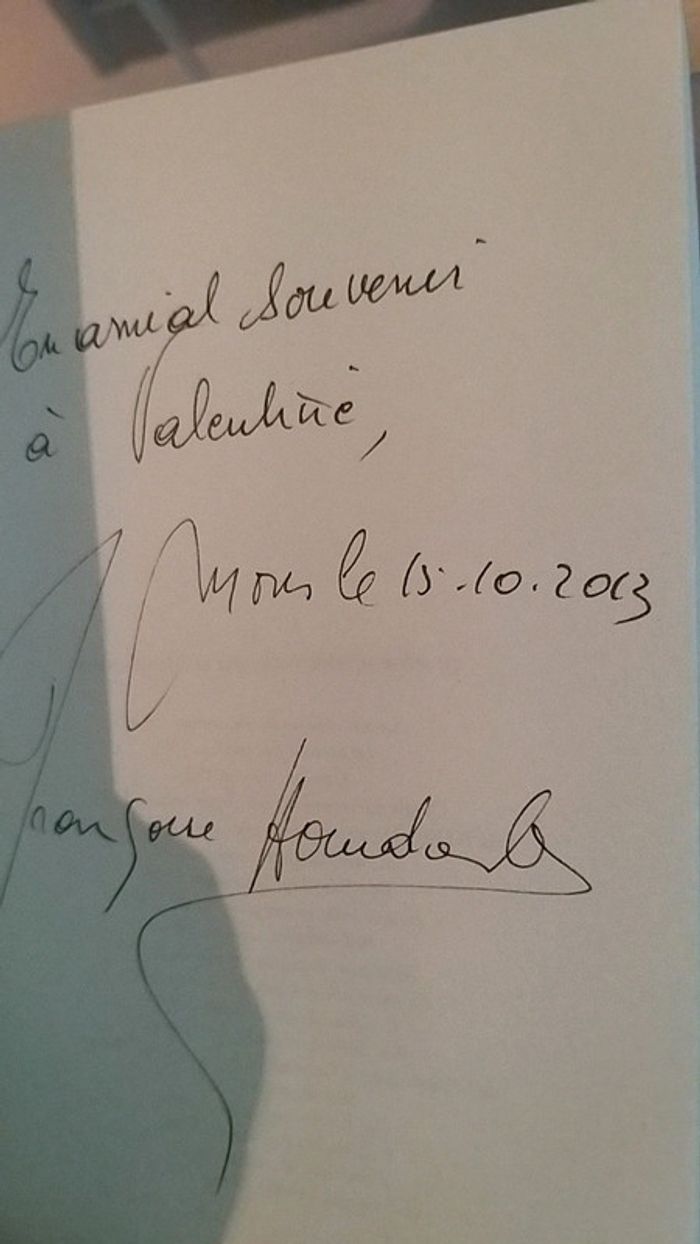 En amical souvenir
à Valentine,
Mons le 15.10.2013
Françoise Houdart